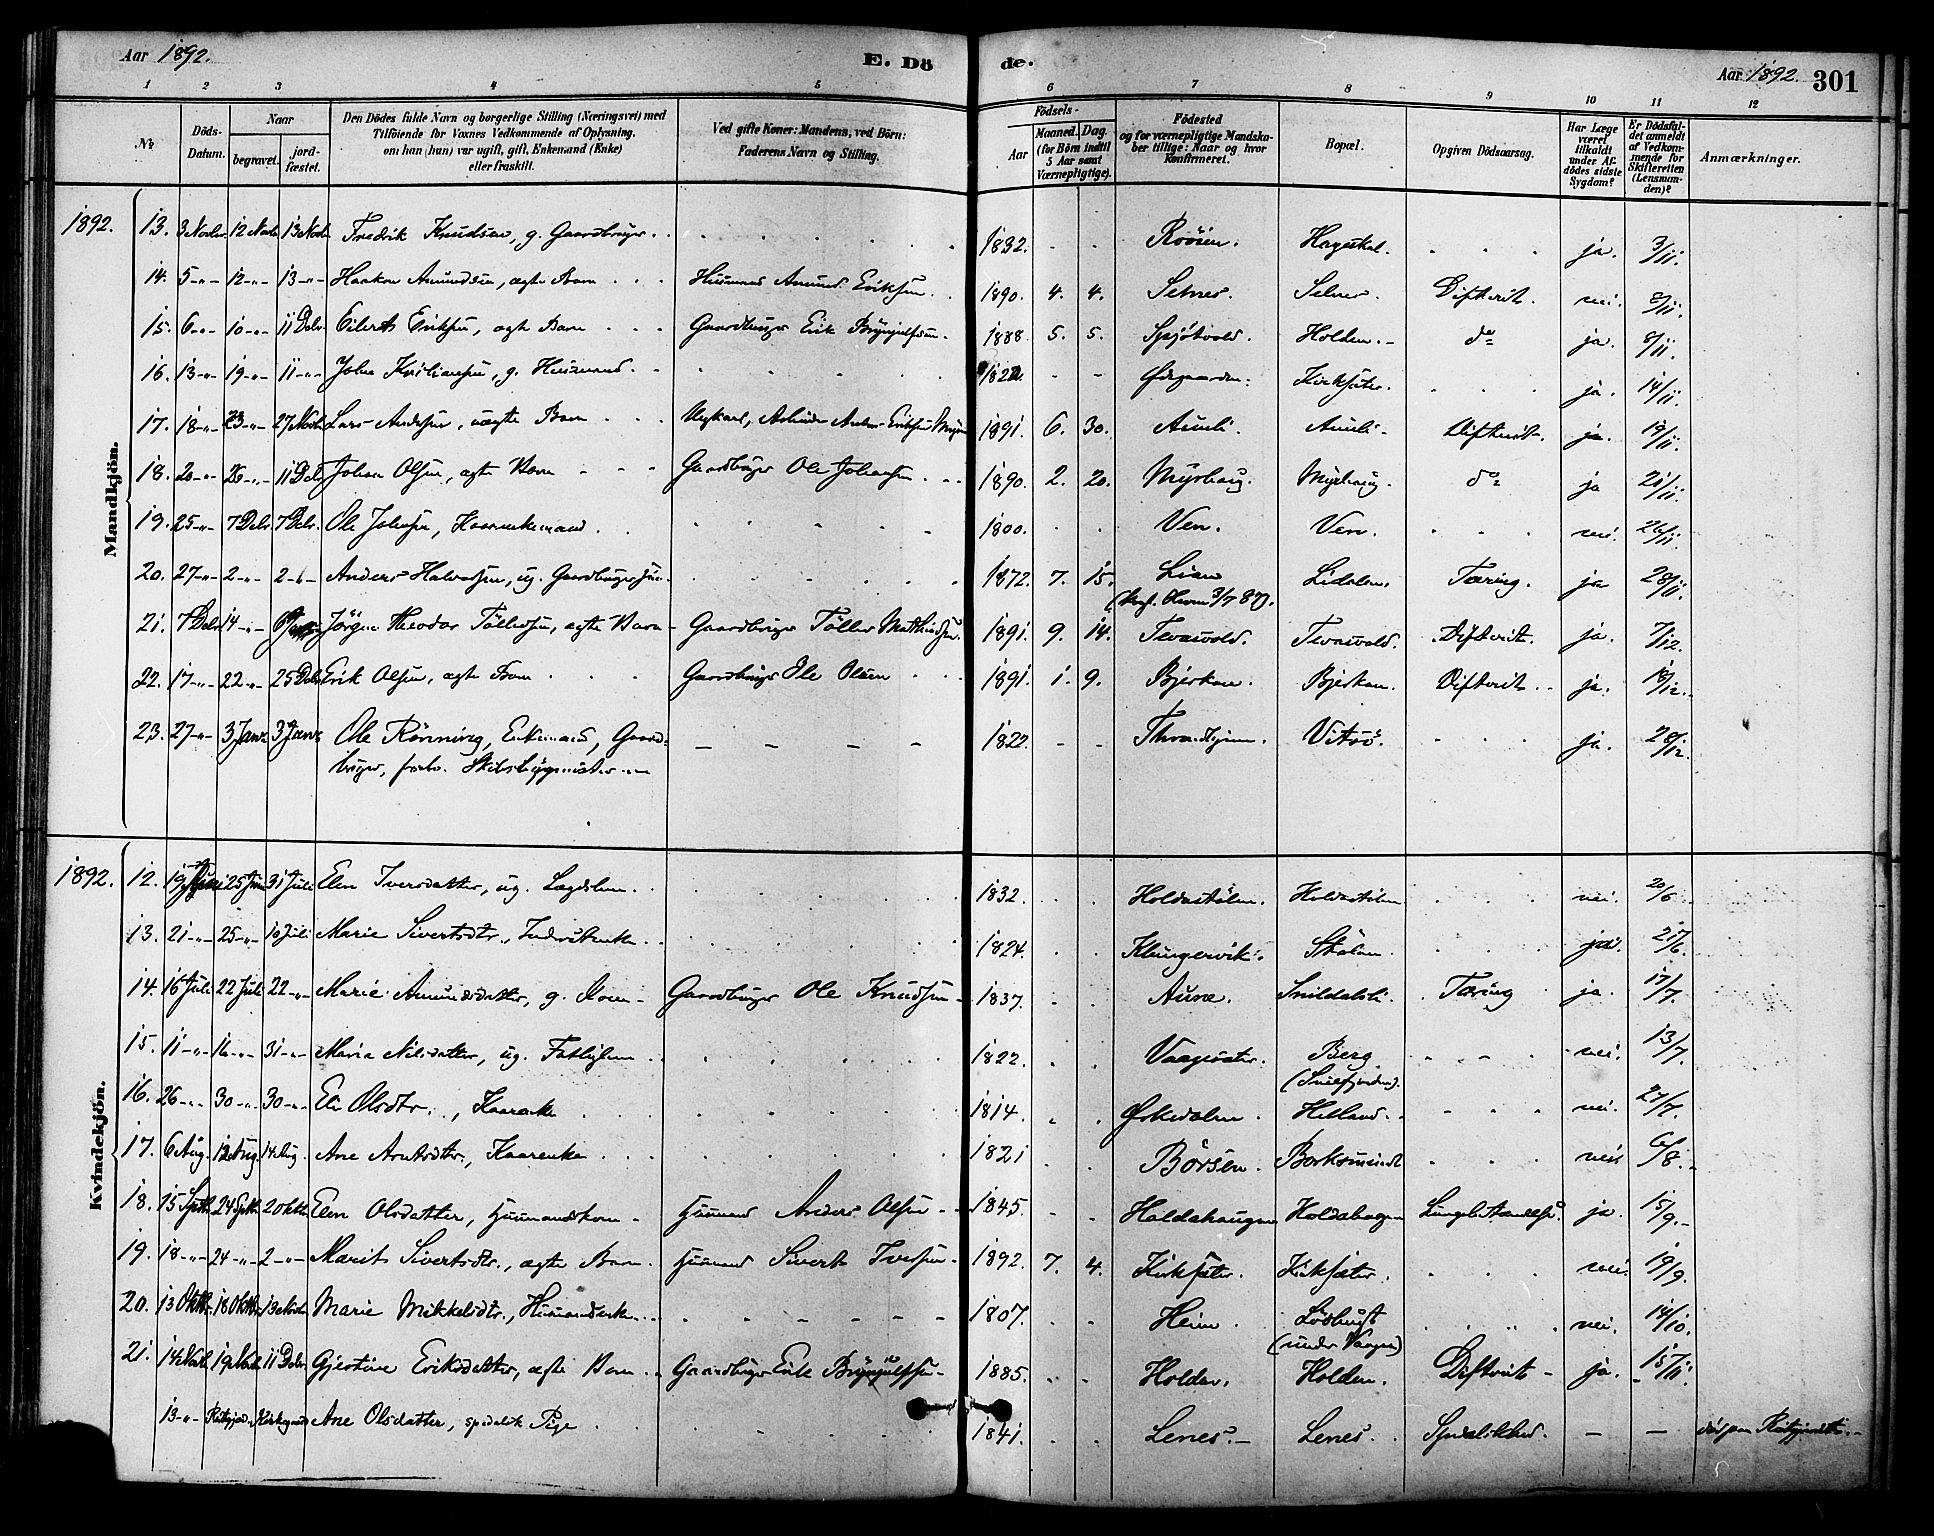 Aar 1892.
E. Dö
de.
Aar 1892. 301
1 2 3 4 5 6 7 8 9 10 11 12
No
Döds-Datum.
Naar
begravet.
jord-fæstet.
Den Dödes fulde Navn og borgerlige Stilling (Næringsvei) med
Tilföiende for Voxnes Vedkommende af Oplysning,
om han (hun) var ugift, gift, Enkemand (Enke)
eller fraskilt.
Ved gifte Koner: Mandens, ved Börn:
Faderens Navn og Stilling.
Födsels-
Aar
Maaned. Dag.
(for Börn indtil
5 Aar samt
Værnepligtige).
Födested
og for værnepligtige Mandska-
ber tillige: Naar og hvor
Konfirmeret.
Bopæl.
Opgiven Dödsaarsag.
Har Læge
været
tilkaldt
under Af-
dödes sidste
Sygdom?
Er Dödsfal-
det anmeldt
af Vedkom-
mende for
Skifteretten
(Lensman-
den)?
Anmærkninger.
Mandkjön.
1892. 13. 3 Novbr 12 Novbr 13 Novbr Fredrik Knudsen, g. Gaardbruger 1832. Röösen. Hageskal. ja. 3/11.
14. 5 -"- 12 -"- 13 -"- Haakon Amundsen, ægte Barn Husmand Amund Eriksen 1890. 4. 4. Selnes. Selnes. Difterit. nei. 8/11.
15. 6 -"- 10 -"- 11 Debr Eilert Eriksen, ægte Barn Gaardbruger Erik Brynjulfsen 1888. 5. 5. Spjötvold. Holden. do ja. 8/11.
16. 13 -"- 19 -"- 11 -"- John Kristiansen, g. Husmand Ødegaarden. Kirksæter. ja. 14/11.
17. 18 -"- 23 -"- 27 Novbr Lars Andersen, uægte Barn Ungkarl, Arbeider Anders Eriksen 1891. 6. 30. Aunli. Aunli. Difterit. ja. 19/11.
18. 20 -"- 26 -"- 11 Debr Johan Olsen, ægte Barn Gaardbruger Ole Johansen 1890. 2. 20. Myrhaug. Myrhaug. do ja 21/11.
19. 25 -"- 7 Debr. 7 Debr. Ole Johnsen, Kaarenkemand 1800. Ven. Ven. nei. 26/11.
20. 27 -"- 2 -"- 2 -"- Anders Halvorsen, ug. Gaardbrugersön 1872. 7. 15. Lian Lidalen. Tæring. ja 28/11.
(konf. Hevne 3/7 87).
21. 7 Debr 14 -"- Jörgen Theodor Töllefsen, ægte Barn Gaardbruger Töllef Matthiasen 1891. 9. 14. Tevasvold. Tevasvold. Difterit. ja. 7/12.
22. 17 -"- 22 -"- 25 Debr Erik Olsen, ægte Barn Gaardbruger Ole Olsen 1891. 1. 9. Bjerkan. Bjerkan. Difterit. ja. 18/12.
23. 27 -"- 3 Janr 3 Janr Ole Rönning, Enkemand, Gaard- 1822. Throndhjem. Vitsö. ja. 28/12.
bruger, forhv. Skibsbygmester
Kvindekjön.
1892. 12. 19 Juni 25 Juni 31 Juli Elen Iversdatter, ug. Lægdslem 1832. Holdastölen. Holdastölen. nei. 20/6
13. 21 -"- 25 -"- 10 Juli Marie Sivertsdtr., Inderstenke 1824. Klungervik. Stölen. ja. 21/6.
14. 16 Juli 22 Juli 22 -"- Marie Amundsdatter, g. Kone Gaardbruger Ole Knudsen 1837. Aune. Snildalsli. Tæring ja. 17/7.
15. 11 -"- 16 -"- 31 -"- Maria Nilsdatter, ug. Fattiglem 1822. Vaagsæter. Berg nei. 13/7.
(Snilfjorden).
16. 26 -"- 30 -"- 30 -"- Eli Olsdtr., Kaarenke 1814. Øskedalen. Helland. nei. 27/7.
17. 6 Aug. 12 Aug. 14 Aug. Ane Arntsdtr., Kaarenke 1821 Börsen. nei. 6/8.
18. 15 Sptb. 24 Sptb. 2 Oktb. Elen Olsdatter, Husmandskone Husmand Anders Olsen 1845. Holdahaugen Holdahagen ja. 15/9.
19. 18 -"- 24 -"- 2 -"- Marit Sivertsdtr., ægte Barn Husmand Sivert Iversen 1892. 7. 4. Kirksæter. Kirksæter. nei. 19/9.
20. 13 Oktb. 18 Oktb. 13 Novbr Marie Mikkelsdtr., Husmandsenke 1807. Heim. nei. 14/10.
(under Vaagen)
21. 14 Novb. 19 Novb. 11 Debr. Gjertine Eriksdatter, ægte Barn Gaardbruger Erik Brynjulfsen 1885. Holden. Holden. Difterit ja. 15/11.
13 -"- Reitgjerdets Kirkegaard Ane Olsdatter, spedalsk Pige 1841. Lenes. Lenes. Spedalskhed. — — död paa Reitgjerdet.